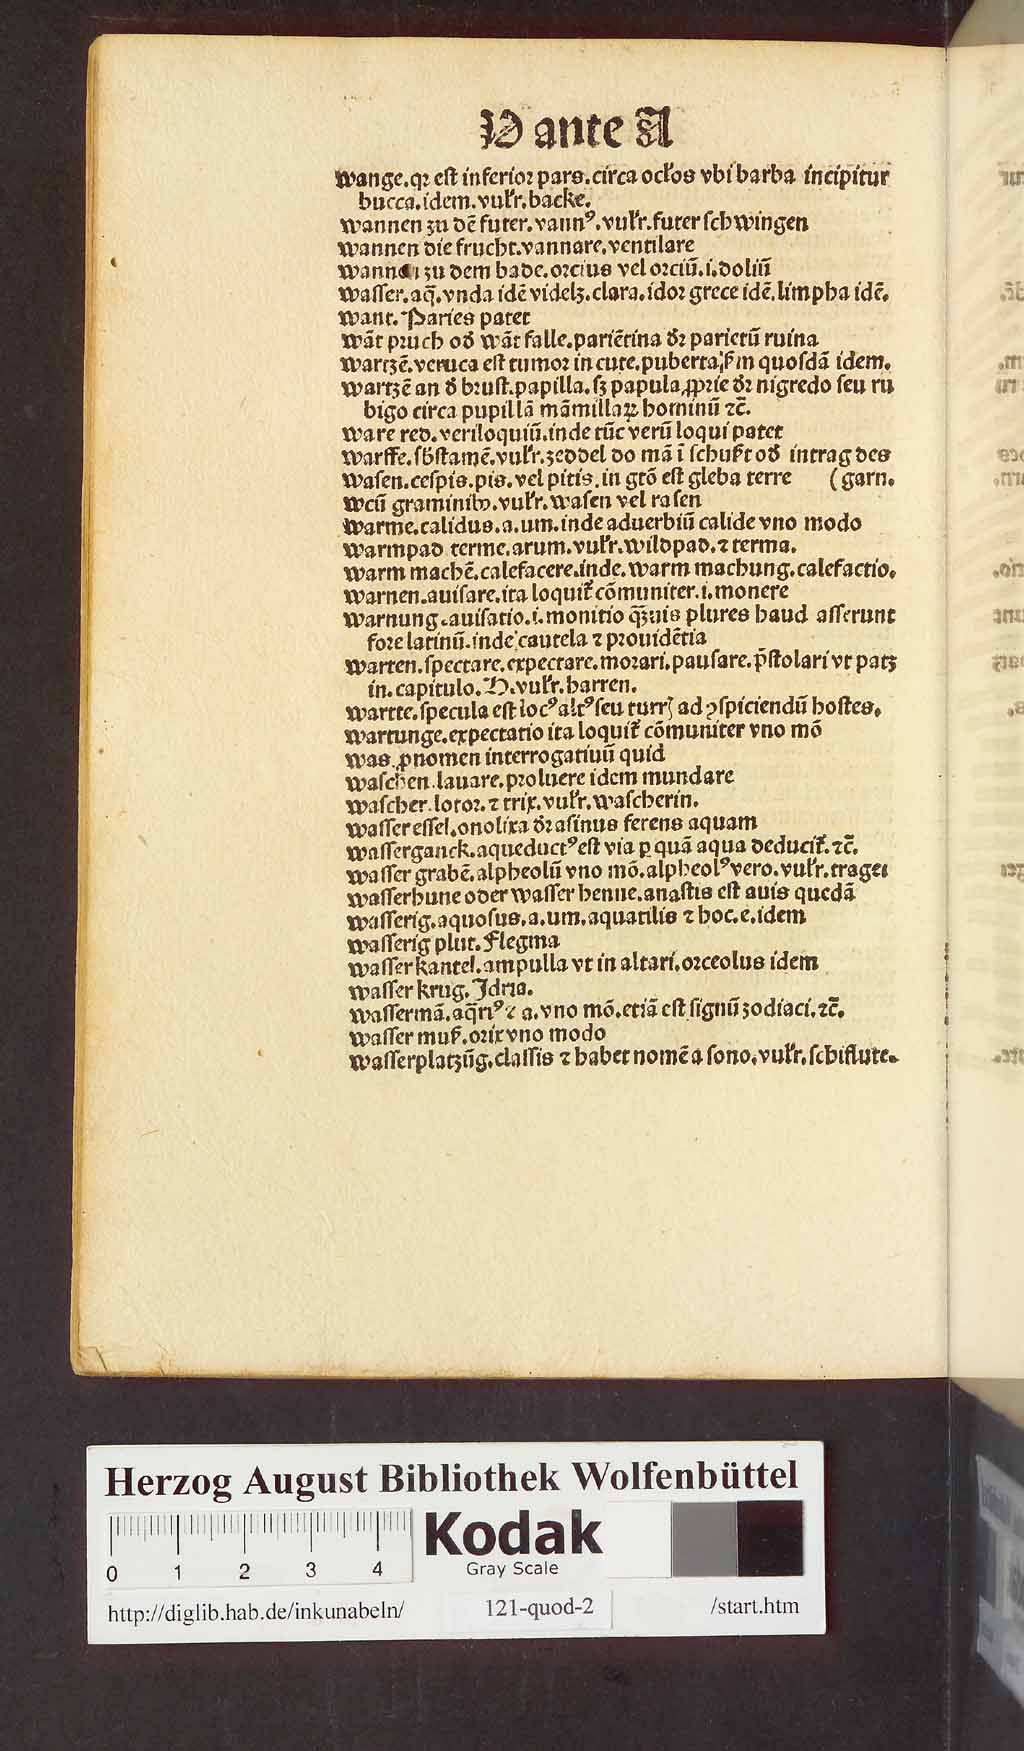 W ante A
wange.qꝛ eſt inferioꝛ pars.circa ocłos vbi barba incipitur
bucca.idem.vulr.backe.
wannen zu dē futer.vannꝰ.vulr.futer ſchwingen
wannen die frucht.vannare.ventilare
wannen zu dem bade.oꝛcius vel oꝛciū.i.doliū
waſſer.aq̄.vnda idē videlꝫ.clara.idoꝛ grece idē.limpha idē.
want. Paries patet
wāt pꝛuch od wāt falle.pariētina dꝛ parietū ruina
wartzē.veruca eſt tumoꝛ in cute.puberta, in quoſdā idem.
wartzē an d bruſt.papilla.ſꝫ papula ꝓprie dꝛ nigredo ſeu ru
bigo circa pupillā māmillaꝝ hominū ⁊c̄.
ware red.veriloquiū.inde tūc verū loqui patet
warffe.ſbſtamē.vulr.zeddel do mā ī od intrag des
waſen.ceſpis.pis.vel pitis.in gtō eſt gleba terre (garn.
wcū graminibꝰ.vulr.waſen vel raſen
warme.calidus.a.um.inde aduerbiū calide vno modo
warmpad terme.arum.vulr.wildpad.⁊ terma.
warm machē.calefacere.inde.warm machung.calefactio.
warnen.auiſare.ita loquit̄ cōmuniter.i.monere
warnung.auiſatio.i.monitio q̄ꝫuis plures haud aſſerunt
foꝛe latinū.inde cautela ⁊ pꝛouidētia
warten.ſpectare.expectare.moꝛari.pauſare.p̄ſtolari vt patꝫ
in.capitulo.H.vulr.harren.
wartte.ſpecula eſt locꝰ altꝰ ſeu turrꝭ ad ꝯſpiciendū hoſtes.
wartunge.expectatio ita loquit̄ cōmuniter vno mō
was.ꝓnomen interrogatiuū quid
waſchen.lauare.pꝛoluere idem mundare
waſcher.lotoꝛ.⁊ trix.vulr.waſcherin.
waſſer eſſel.onolixa dꝛ aſinus ferens aquam
waſſerganck.aqueductꝰ eſt via ꝑ quā aqua deducit̄.⁊c̄.
waſſer grabē.alpheolū vno mō.alpheolꝰ vero.vulr.trager
waſſerhune oder waſſer henne.anaſtis eſt auis quedā
waſſerig.aquoſus.a.um.aquatilis ⁊ hoc.e.idem
waſſerig plut. Flegma
waſſer kantel.ampulla vt in altari.oꝛceolus idem
waſſer krug. Idria.
waſſermā.aq̄riꝰ ⁊ a.vno mō.etiā eſt ſignū zodiaci.⁊c̄.
waſſer muß.oꝛix vno modo
waſſerplatzūg.claſſis ⁊ habet nomē a ſono.vulr.ſchiflute.
Herzog August Bibliothek Wolfenbüttel
Kodak
Gray Scale
0 1 2 3 4
http://diglib.hab.de/inkunabeln/ 121-quod-2 /start.htm